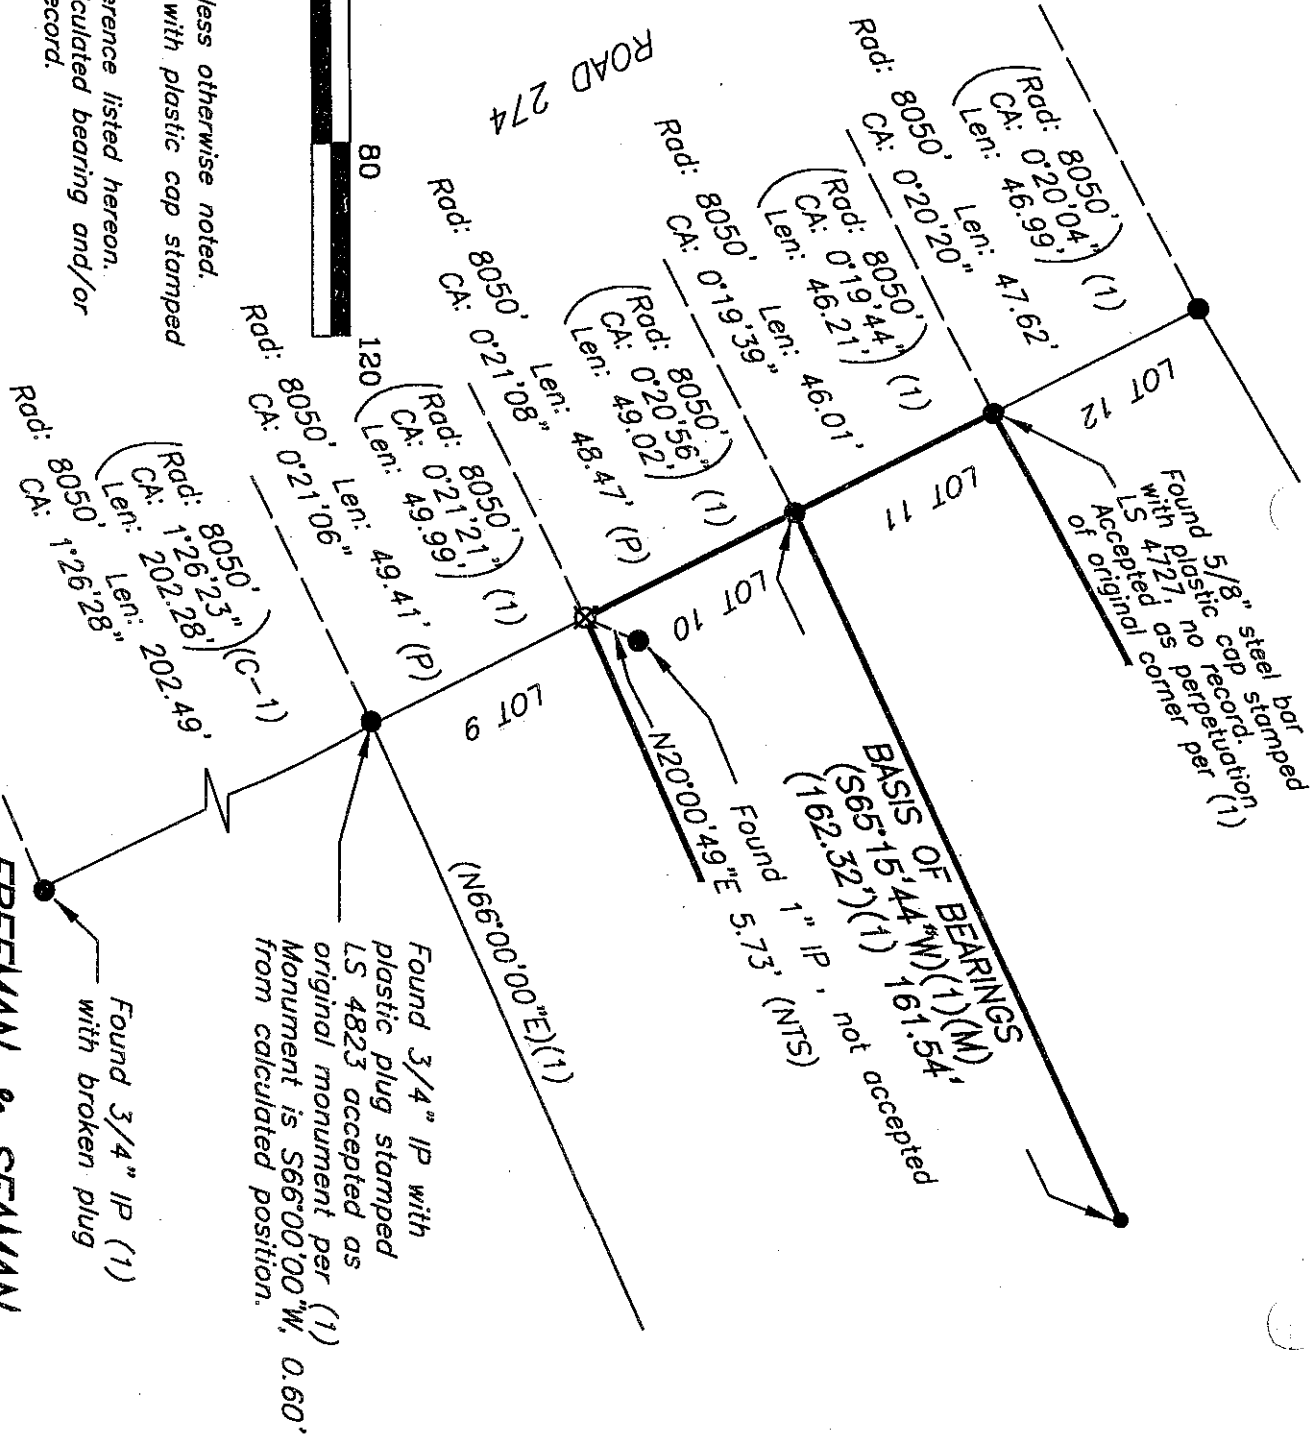 less otherwise noted.
with plastic cap stamped
erence listed hereon.
culated bearing and/or
ecord.
80
120
ROAD 274
(Rad: 8050'
CA: 0°20'04"
Len: 46.99') (1)
Rad: 8050' Len: 47.62'
CA: 0°20'20"
(Rad: 8050'
CA: 0°19'44"
Len: 46.21') (1)
Rad: 8050' Len: 46.01'
CA: 0°19'39"
(Rad: 8050'
CA: 0°20'56"
Len: 49.02') (1)
Rad: 8050' Len: 48.47' (P)
CA: 0°21'08"
(Rad: 8050'
CA: 0°21'21"
Len: 49.99') (1)
Rad: 8050' Len: 49.41' (P)
CA: 0°21'06"
(Rad: 8050'
CA: 1°26'23"
Len: 202.28') (C-1)
Rad: 8050' Len: 202.49'
CA: 1°26'28"
LOT 12
LOT 11
LOT 10
LOT 9
Found 5/8" steel bar
with plastic cap stamped
LS 4727, no record.
Accepted as perpetuation
of original corner per (1)
BASIS OF BEARINGS
(S65°15'44"W)(1)(M)
(162.32')(1) 161.54'
Found 1" IP, not accepted
N20°00'49"E 5.73' (NTS)
(N66°00'00"E)(1)
Found 3/4" IP with
plastic plug stamped
LS 4823 accepted as
original monument per (1)
Monument is S66°00'00"W, 0.60'
from calculated position.
Found 3/4" IP (1)
with broken plug
FREEMAN & SEAMAN